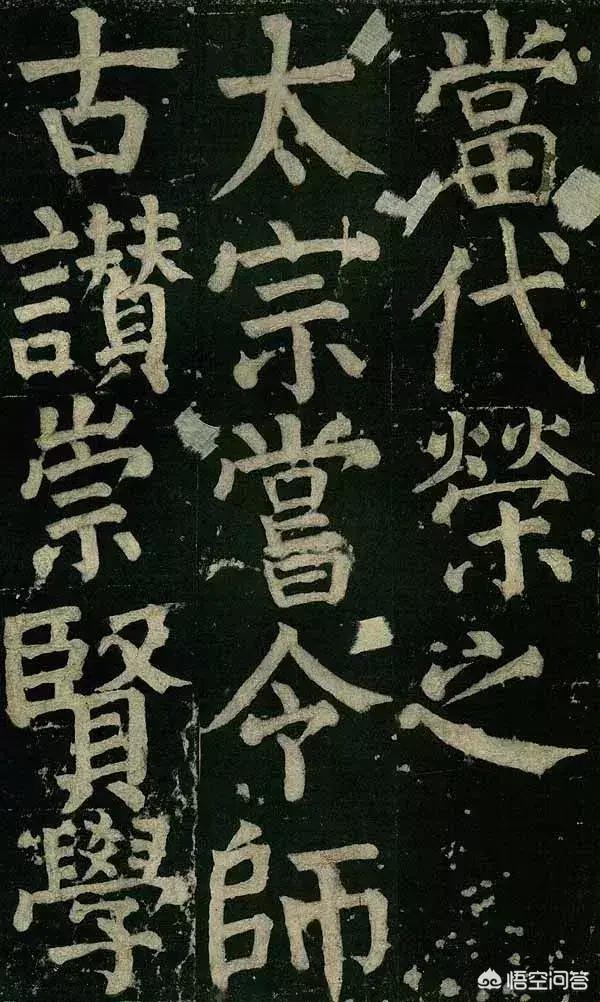 當代榮之
太宗嘗令師
古讃崇賢學
悟空问答